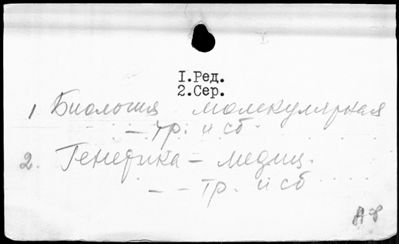 I.Ред.
2.Сер.
1 Биология молекулярная
– тр. и сб.
2. Генетика – медиц.
– – тр. и сб